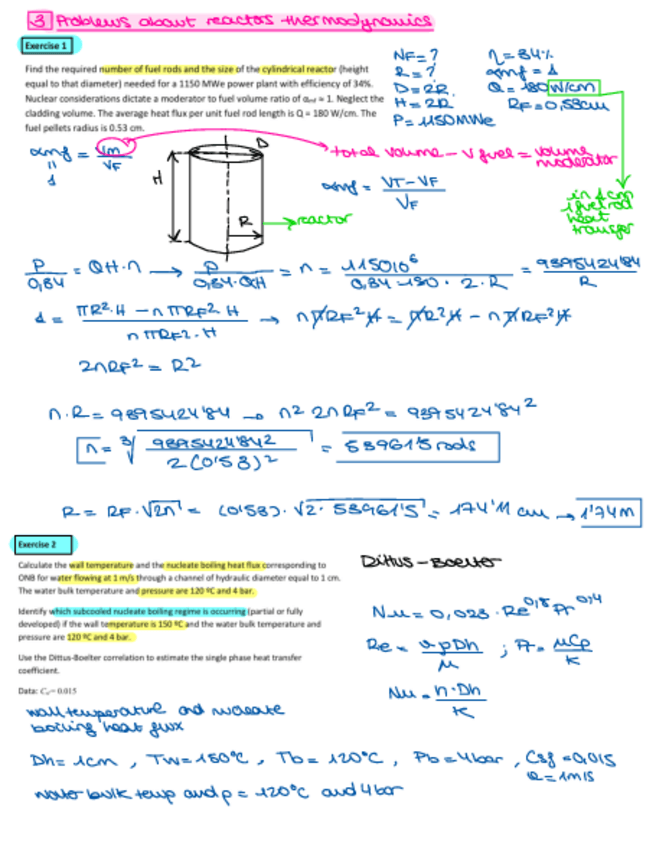 3 Problems about reactors thermodynamics
Exercise 1
Find the required number of fuel rods and the size of the cylindrical reactor (height
equal to that diameter) needed for a 1150 MWe power plant with efficiency of 34%.
Nuclear considerations dictate a moderator to fuel volume ratio of αmf ≈ 1. Neglect the
cladding volume. The average heat flux per unit fuel rod length is Q = 180 W/cm. The
fuel pellets radius is 0.53 cm.
NF = ?
R = ?
D = 2R
H = 2R
P = 1150MWe
η = 34%
αmf = 1
Q = 180 W/cm
RF = 0,53cm
αmf = Vm / VF
1
total volume - V fuel = volume moderator
αmf = VT - VF / VF
H
D
R
reactor
in 1cm
1 fuel rod
heat
transfer
P / 0,34 = QH·n → P / 0,34·QH = n = 1150 10^6 / 0,34·180·2·R = 9395424'84 / R
1 = πR²·H - nπRF²·H / nπRF²·H → nπRF²H = πR²H - nπRF²H
2nRF² = R²
n·R = 9395424'84 → n² 2nRF² = 9395424'84²
n = ∛ 9395424'84² / 2(0'53)² = 53961'5 rods
R = RF·√2n = (0'53)·√2·53961'5 = 174'11 cm → 1'74m
Exercise 2
Calculate the wall temperature and the nucleate boiling heat flux corresponding to
ONB for water flowing at 1 m/s through a channel of hydraulic diameter equal to 1 cm.
The water bulk temperature and pressure are 120 ºC and 4 bar.
Identify which subcooled nucleate boiling regime is occurring (partial or fully
developed) if the wall temperature is 150 ºC and the water bulk temperature and
pressure are 120 ºC and 4 bar.
Use the Dittus-Boelter correlation to estimate the single phase heat transfer
coefficient.
Data: Csf = 0.015
Dittus-Boelter
Nu = 0,023·Re^0,8 Pr^0,4
Re = vρDh / μ ; Pr = μCp / K
Nu = h·Dh / K
wall temperature and nucleate
boiling heat flux
Dh = 1cm , Tw = 150°C , Tb = 120°C , Pb = 4bar , Csf = 0,015
= 1m/s
water bulk temp and p = 120°C and 4bar